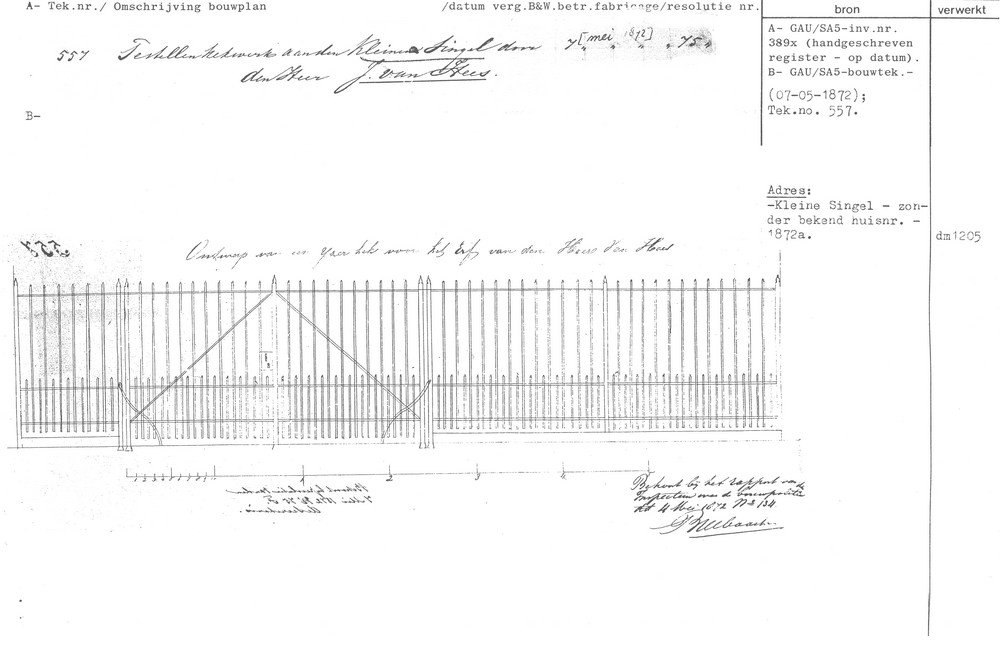 A- Tek.nr./ Omschrijving bouwplan /datum verg.B&W.betr.fabricage/resolutie nr.
bron
verwerkt
557 Te stellen hekwerk aan den Kleinen Singel door 7 [mei 1872] " " " 75 "
den Heer J. van Hees.
A- GAU/SA5-inv.nr.
389x (handgeschreven
register - op datum).
B- GAU/SA5-bouwtek.-
(07-05-1872);
Tek.no. 557.
B-
Adres:
-Kleine Singel - zon-
der bekend huisnr. -
1872a.
dm1205
557
Ontwerp van een Yzer hek voor het Erf van den Heer Van Hees
1 2 3 4 5
Behoort bij het rapport van de
Inspecteur van de bouwpolitie
dd 4 Mei 1872 No 134